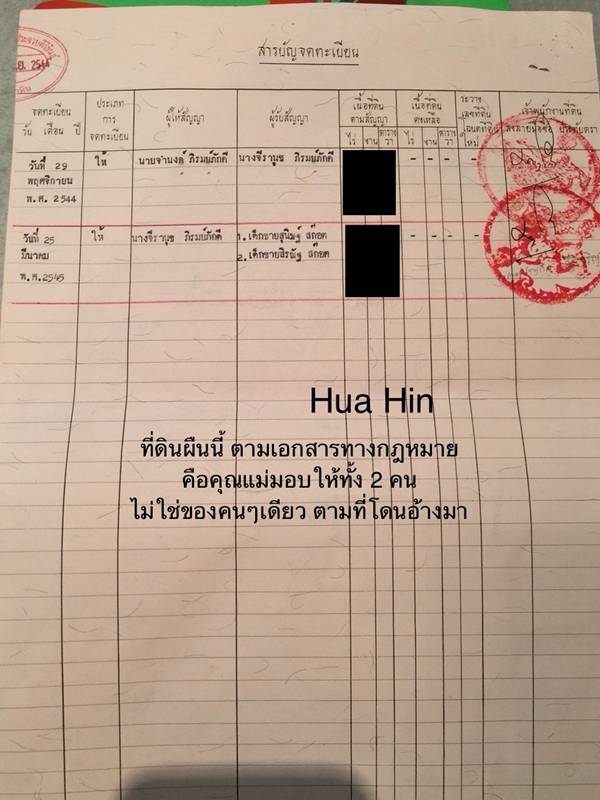 พ.ย. 2544
สารบัญจดทะเบียน
จดทะเบียน
วัน เดือน ปี
ประเภท
การ
จดทะเบียน
ผู้ให้สัญญา
ผู้รับสัญญา
เนื้อที่ดิน
ตามสัญญา
ไร่ งาน ตารางวา
เนื้อที่ดิน
คงเหลือ
ไร่ งาน ตารางวา
ระวาง
เลขที่ดิน
โฉนดที่ดิน
ใหม่
เจ้าพนักงานที่ดิน
ลงลายมือชื่อ ประทับตรา
วันที่ 29 ให้ นายจำนงค์ ภิรมย์ภักดี นางจีรานุช ภิรมย์ภักดี - - - -
พฤศจิกายน
พ.ศ. 2544
วันที่ 25 ให้ นางจีรานุช ภิรมย์ภักดี 1. เด็กชายสุนิษฐ์ สก๊อต - - - -
มีนาคม 2. เด็กชายสิรณัฐ สก๊อต
พ.ศ. 2545
Hua Hin
ที่ดินผืนนี้ ตามเอกสารทางกฎหมาย
คือคุณแม่มอบให้ทั้ง 2 คน
ไม่ใช่ของคนๆเดียว ตามที่โดนอ้างมา